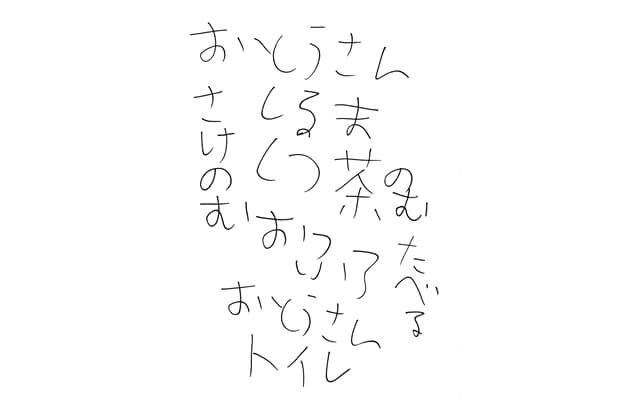 おいとうさん
さけのむ
しるま
くつ
茶のむ
おいろいろ
たべる
おいとうさん
トイレ